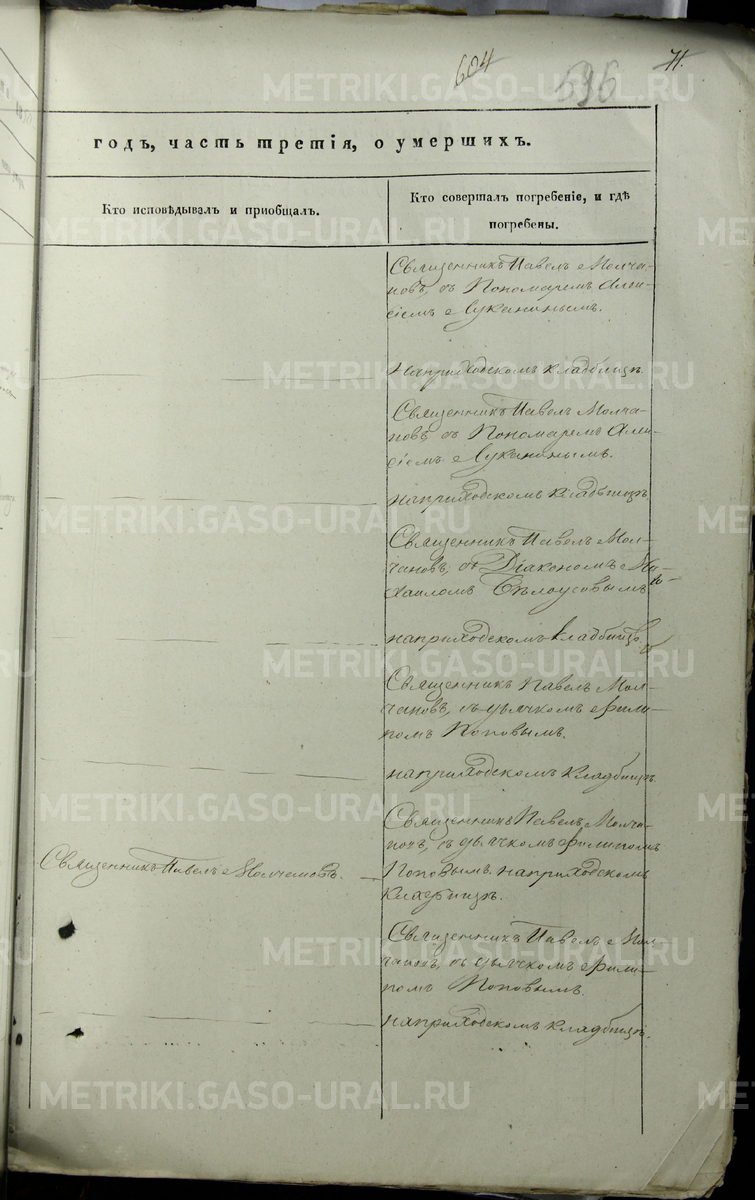 604
596
71.
годъ, часть третія, о умершихъ.
Кто исповѣдывалъ и приобщалъ.
Кто совершалъ погребеніе, и гдѣ
погребены.
Священникъ Павелъ Молча-
новъ, съ Пономаремъ Алек-
сіемъ Лукинымъ.
на приходскомъ кладбищѣ
Священникъ Павелъ Молча-
новъ, съ Пономаремъ Алек-
сіемъ Лукинымъ.
на приходскомъ кладбищѣ
Священникъ Павелъ Мол-
чановъ, съ Діакономъ Ми-
хаиломъ Бѣлоусовымъ
на приходскомъ кладбищѣ
Священникъ Павелъ Мол-
чановъ, съ дьячкомъ Фили-
помъ Поповымъ.
на приходскомъ кладбищѣ.
Священникъ Павелъ Молча-
новъ, съ дьячкомъ Филипомъ
Священникъ Павелъ Молчановъ.
Поповымъ. на приходскомъ
кладбищѣ.
Священникъ Павелъ Мол-
чановъ, съ дьячкомъ Фили-
помъ Поповымъ.
на приходскомъ кладбищѣ.
METRIKI.GASO-URAL.RU